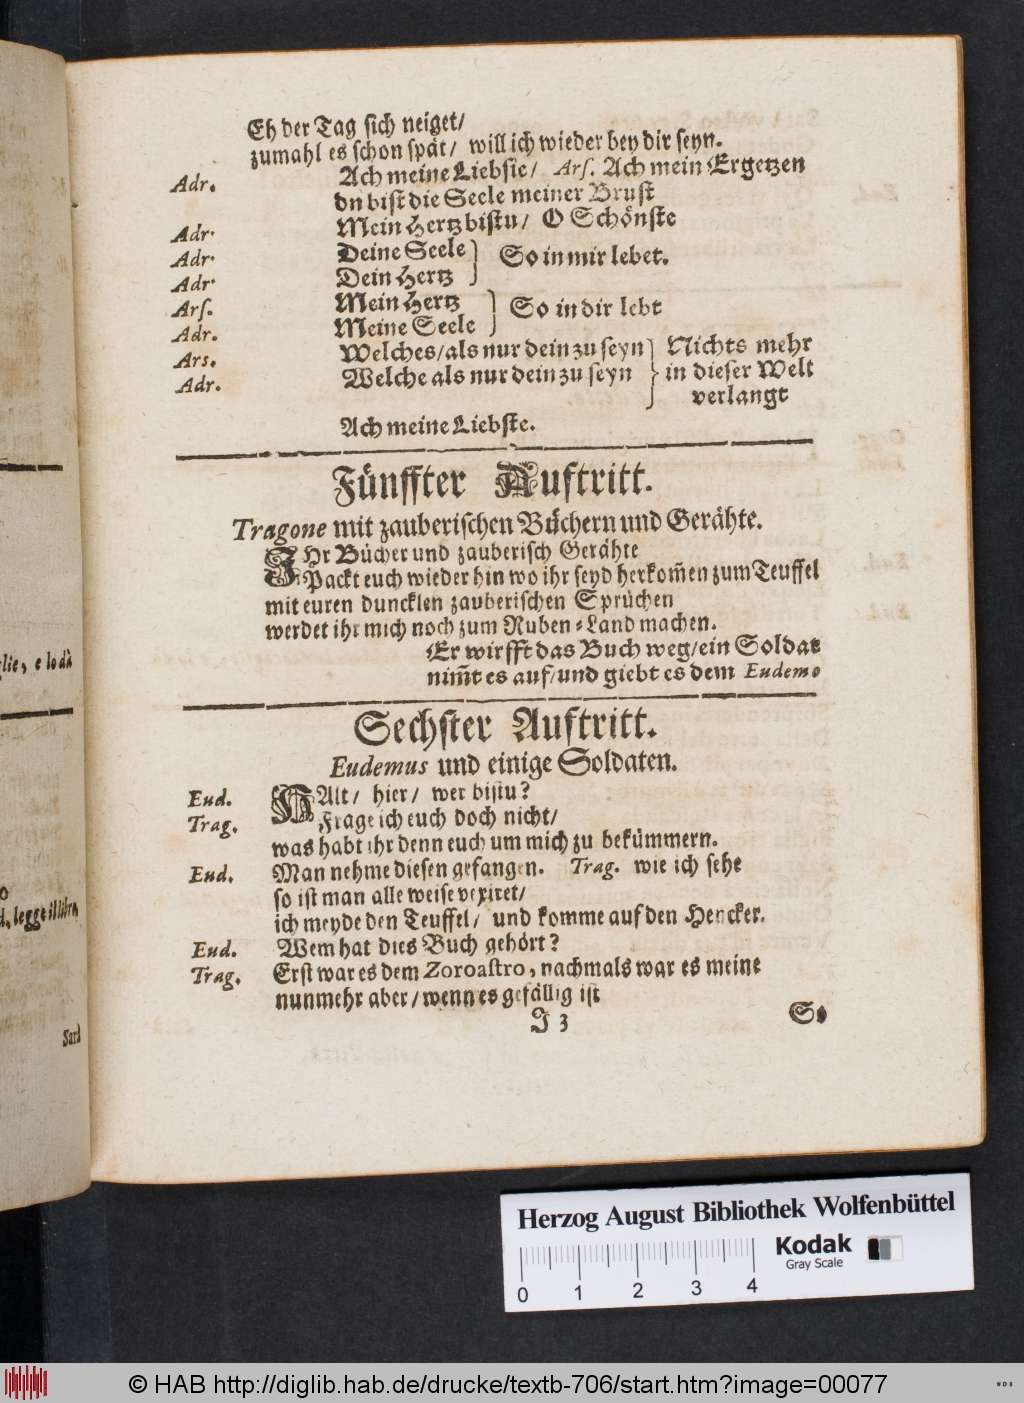 Eh der Tag sich neiget/
zumahl es schon spät/ will ich wieder bey dir seyn.
Adr. Ach meine Liebste/ Ars. Ach mein Ergetzen
dn bist die Seele meiner Brust
Adr. Mein Hertz bistu/ O Schönste
Adr. Deine Seele } So in mir lebet.
Adr. Dein Hertz }
Ars. Mein Hertz } So in dir lebt
Adr. Meine Seele }
Ars. Welches/als nur dein zu seyn } Nichts mehr
Adr. Welche als nur dein zu seyn } in dieser Welt
verlangt
Ach meine Liebste.
Fünffter Auftritt.
Tragone mit zauberischen Büchern und Gerähte.
IHr Bücher und zauberisch Gerähte
Packt euch wieder hin wo ihr seyd herkom̃en zum Teuffel
mit euren duncklen zauberischen Sprüchen
werdet ihr mich noch zum Ruben-Land machen.
Er wirfft das Buch weg/ein Soldat
nim̃t es auf/und giebt es dem Eudemo
Sechster Auftritt.
Eudemus und einige Soldaten.
Eud. HAlt/ hier/ wer bistu?
Trag. Frage ich euch doch nicht/
was habt ihr denn euch um mich zu bekümmern.
Eud. Man nehme diesen gefangen. Trag. wie ich sehe
so ist man alle weise vexiret/
ich meyde den Teuffel/ und komme auf den Hencker.
Eud. Wem hat dies Buch gehört?
Trag. Erst war es dem Zoroastro, nachmals war es meine
nunmehr aber/wenn es gefällig ist
J 3
So
glie, e lo dà
d, legge il libro
Sard
Herzog August Bibliothek Wolfenbüttel
Kodak
Gray Scale
0 1 2 3 4
© HAB http://diglib.hab.de/drucke/textb-706/start.htm?image=00077